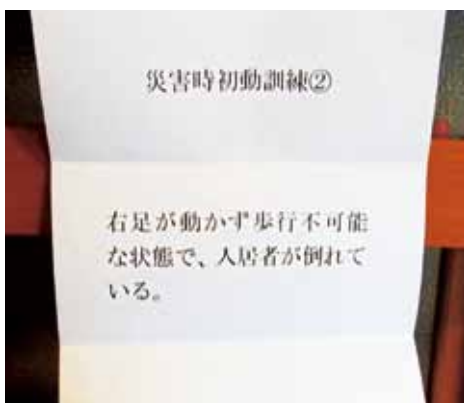 災害時初動訓練②
右足が動かず歩行不可能
な状態で、入居者が倒れて
いる。